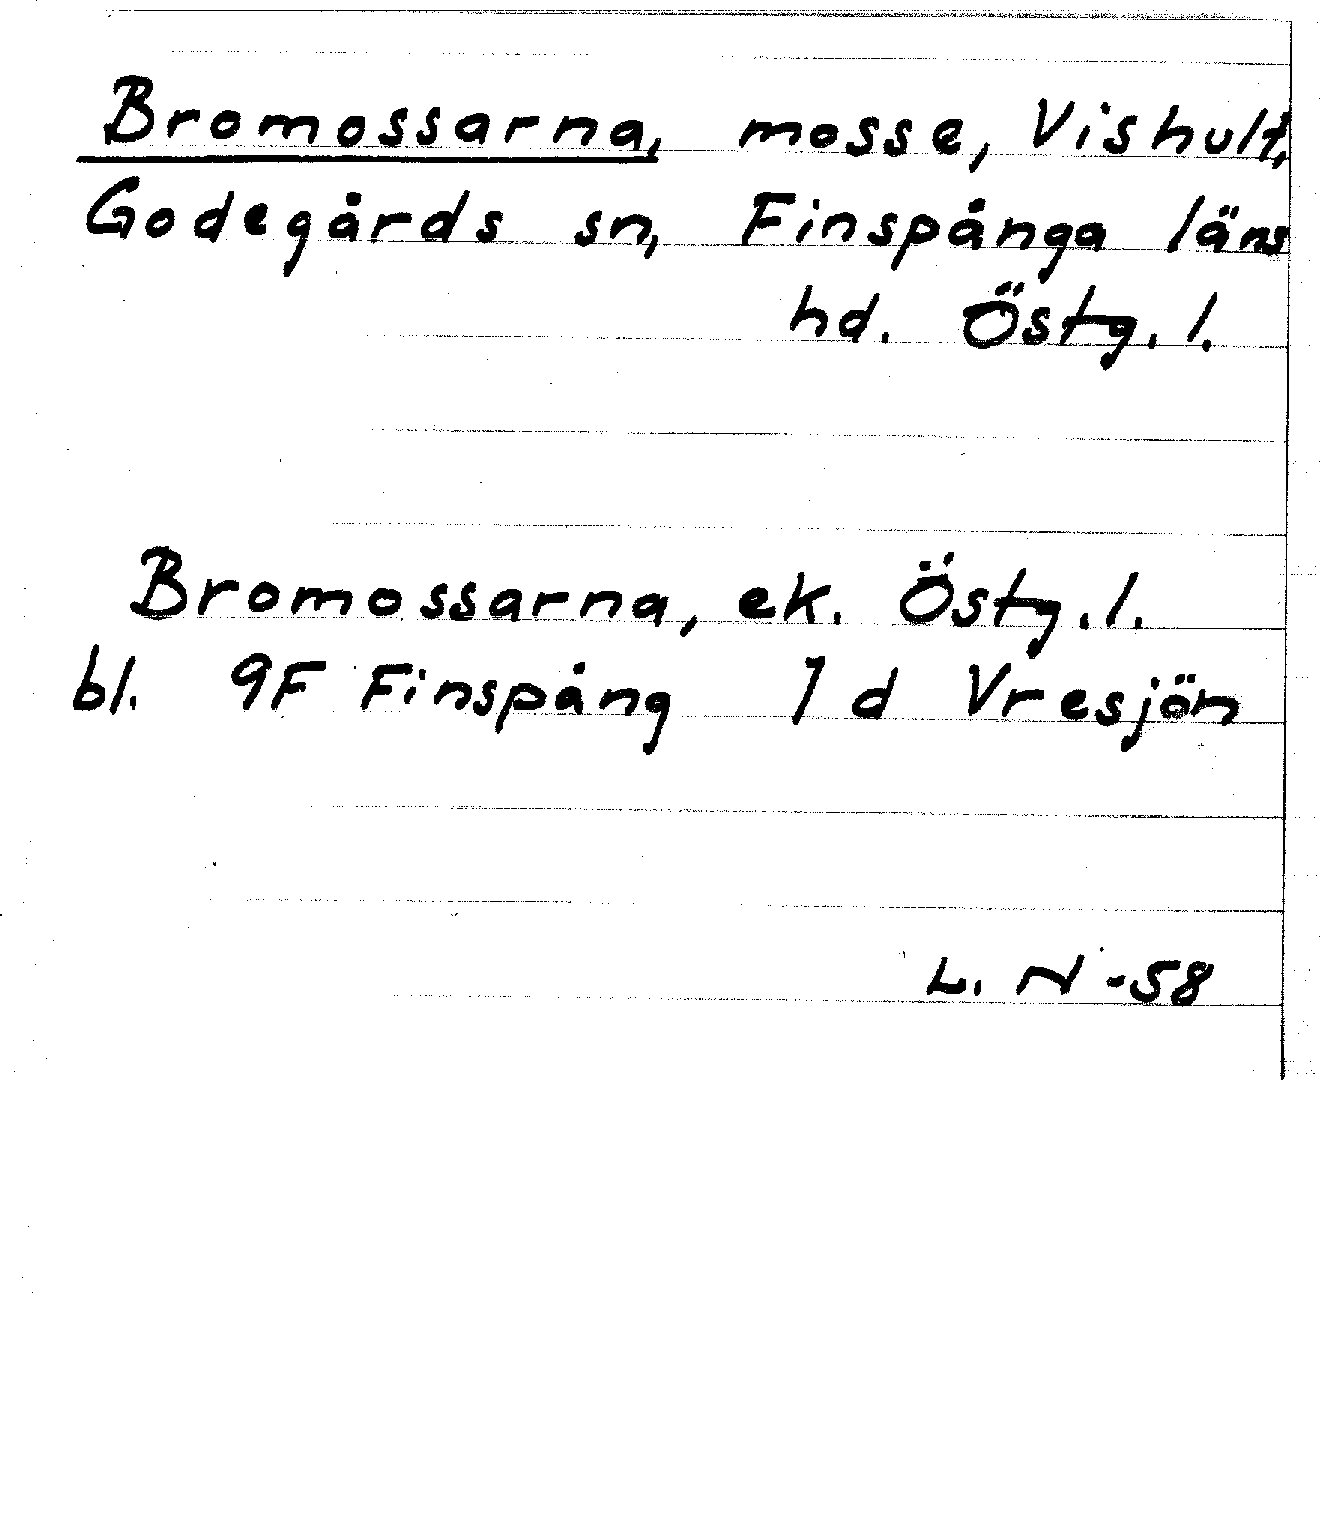 Bromossarna, mosse, Vishult,
Godegårds sn, Finspånga läns
hd. Östg. l.
Bromossarna, ek. Östg. l.
bl. 9F Finspång 1 d Vresjön
L. N -58